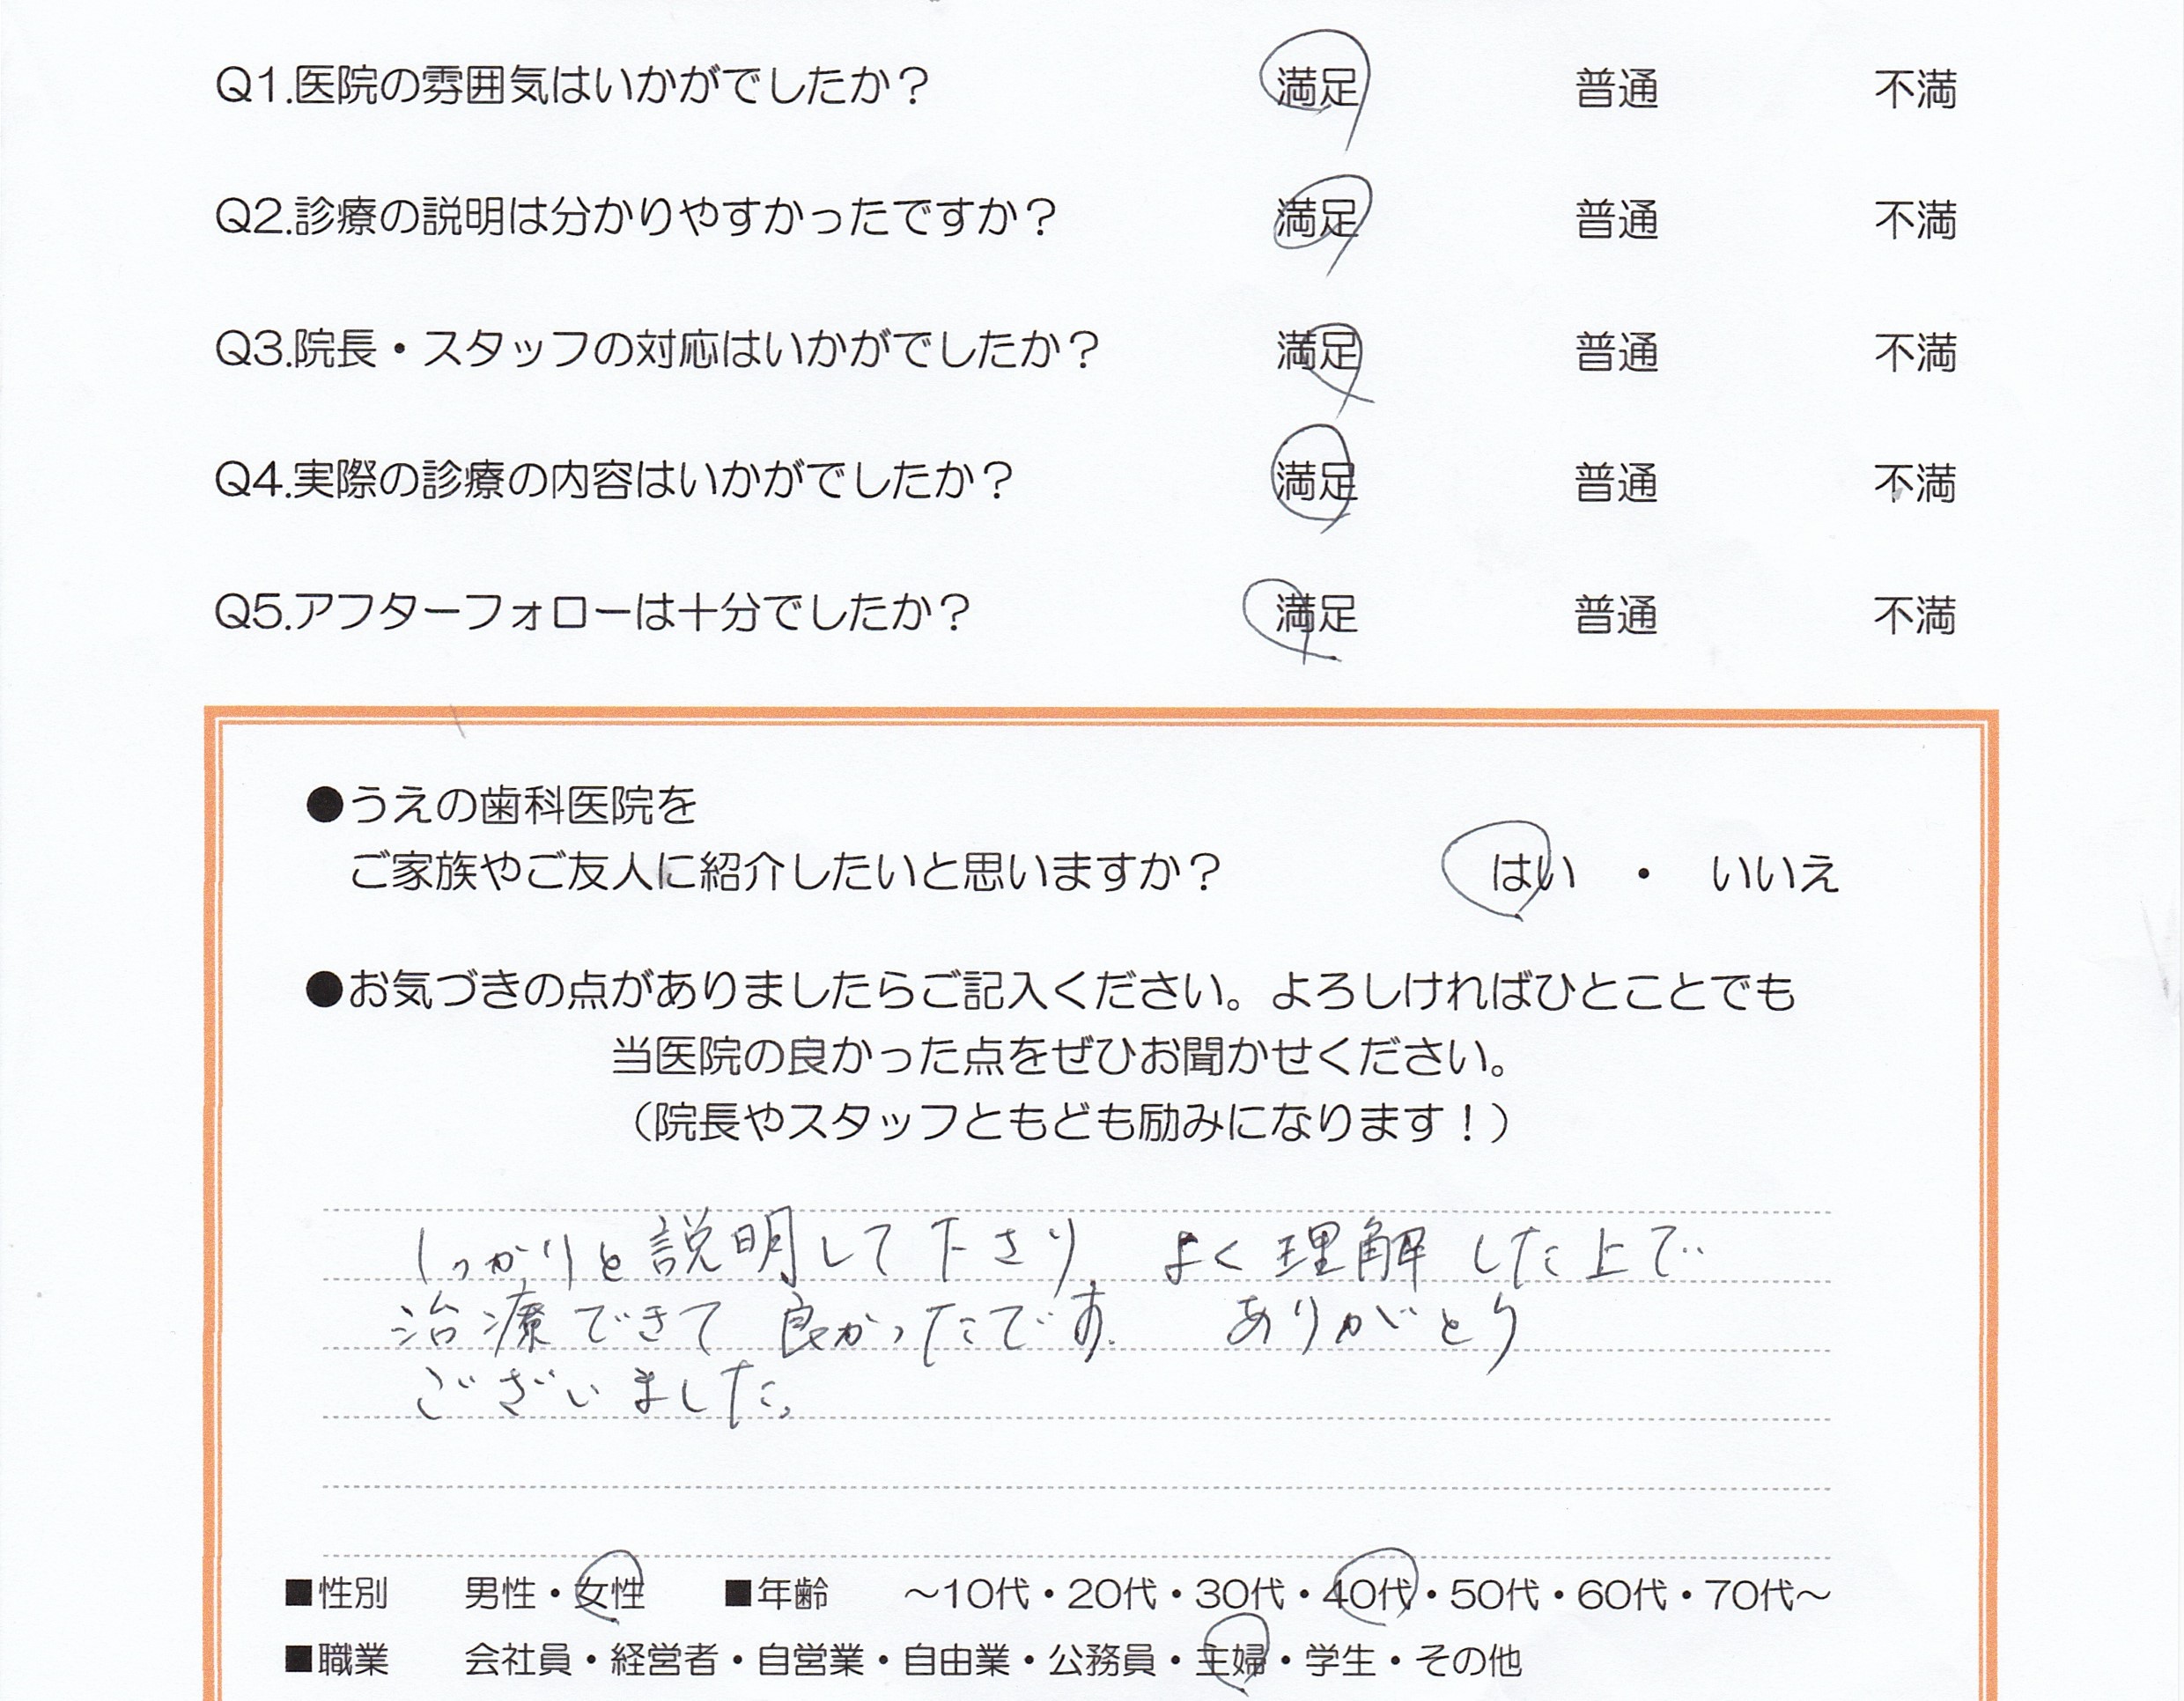 Q1.医院の雰囲気はいかがでしたか？ 満足 普通 不満
Q2.診療の説明は分かりやすかったですか？ 満足 普通 不満
Q3.院長・スタッフの対応はいかがでしたか？ 満足 普通 不満
Q4.実際の診療の内容はいかがでしたか？ 満足 普通 不満
Q5.アフターフォローは十分でしたか？ 満足 普通 不満
●うえの歯科医院を
ご家族やご友人に紹介したいと思いますか？ はい ・ いいえ
●お気づきの点がありましたらご記入ください。よろしければひとことでも
当医院の良かった点をぜひお聞かせください。
（院長やスタッフともども励みになります！）
しっかりと説明して下さり、よく理解した上で
治療できて良かったです。ありがとう
ございました。
■性別 男性・女性 ■年齢 〜10代・20代・30代・40代・50代・60代・70代〜
■職業 会社員・経営者・自営業・自由業・公務員・主婦・学生・その他